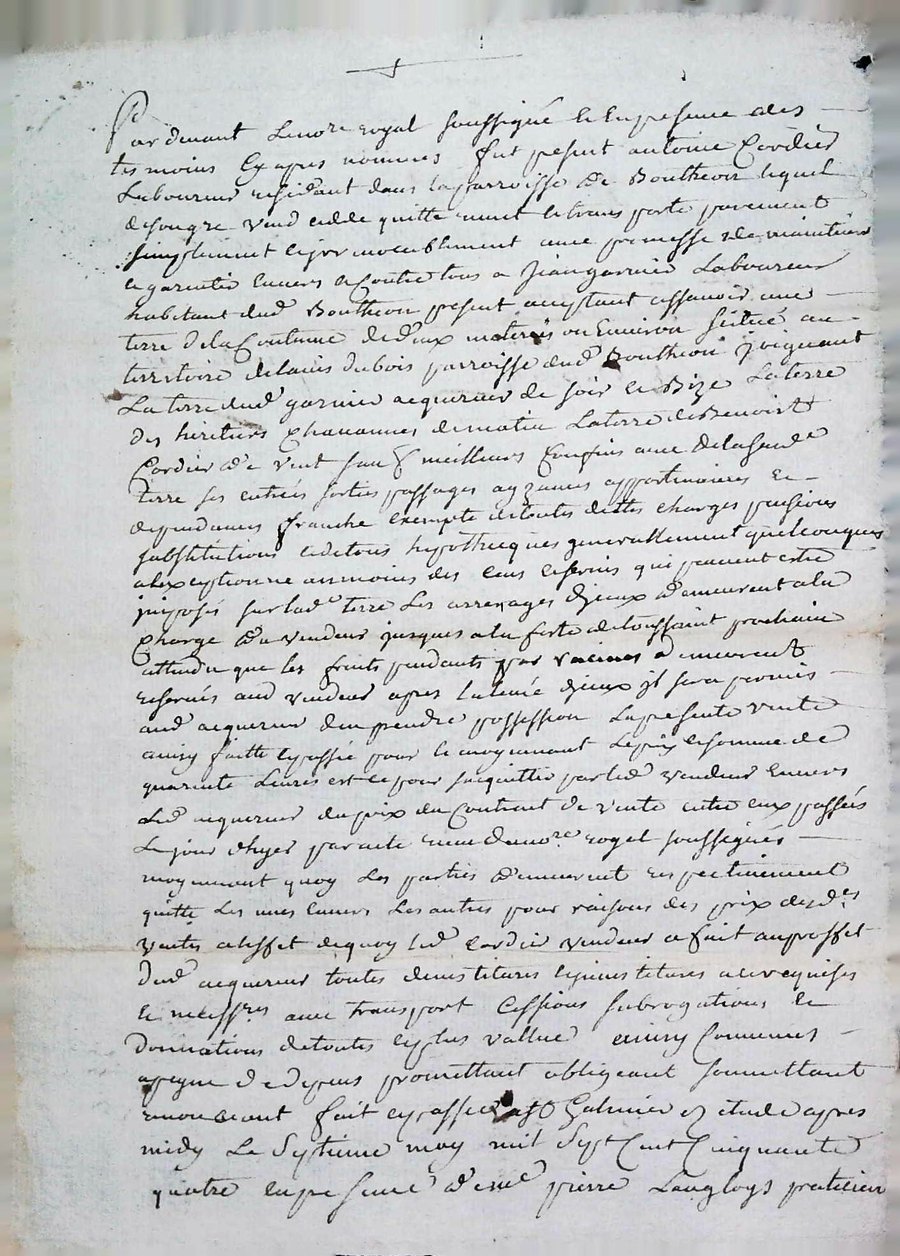 Par devant Lenore royal soussigné & En presence des
tesmoins cy apres nommes fut present antoine Cordier
Laboureur residant dans la parroisse de Boutheon lequel
de son gre vend cedde quitte remet et transporte purement
simplement et irrevocablement avec promesse de maintenir
et garentir Envers et Contre tous a Jean garnier Laboureur
habitant dud Boutheon present acceptant assavoir une
terre de la Contenue de deux meterés ou Environ scitué au
territoire de bois parroisse dud Boutheon joignant
La terre dud garnier acquereur de soir et Bize La terre
des heritiers Chavannes de matin La terre de Benoist
Cordier de vent sauf meilleurs Confins avec de lasusde
terre ses entrées sorties passages ayzances appartenances et
dependances franche Exempte de toutes dettes charges pensions
substitutions et de tous hypothecques generallement quelconques
a lexception neanmoins des Cens et servis qui peuvent estre
imposés sur lade terre Les arrerages diceux demeurent a la
Charge du vendeur jusques a la feste de toussaint prochaine
attendu que les fruits pendants par racines demeurent
reservés aud vendeur apres la levée diceux il sera permis
aud acquereur den prendre possession La presente vente
ainsy faitte et passée pour et moyennant Le prix et somme de
quarante Livres et ce pour sacquitter par led vendeur Envers
Led acquereur du prix du Contract de vente entre eux passés
Le jour dhyer par acte receu de nore royal soussigné
moyennant quoy Les parties demeurent respectivement
quitte Les unes Envers Les autres pour raisons des prix desdes
ventes a leffet de quoy led Cordier vendeur a fait au proffet
dud acquereur toutes demestitures et investitures a ce requises
et necessres avec transport Cessions subrogations et
donnations de toutes et plus vallue ainsy Convenues
a peyne de depens promettant obligeant soumettant
renonceant fait et passé a st Galmier Etude apres
midy Le Septieme may mil Sept Cent Cinquante
quatre En presence de me pierre Langloys praticien